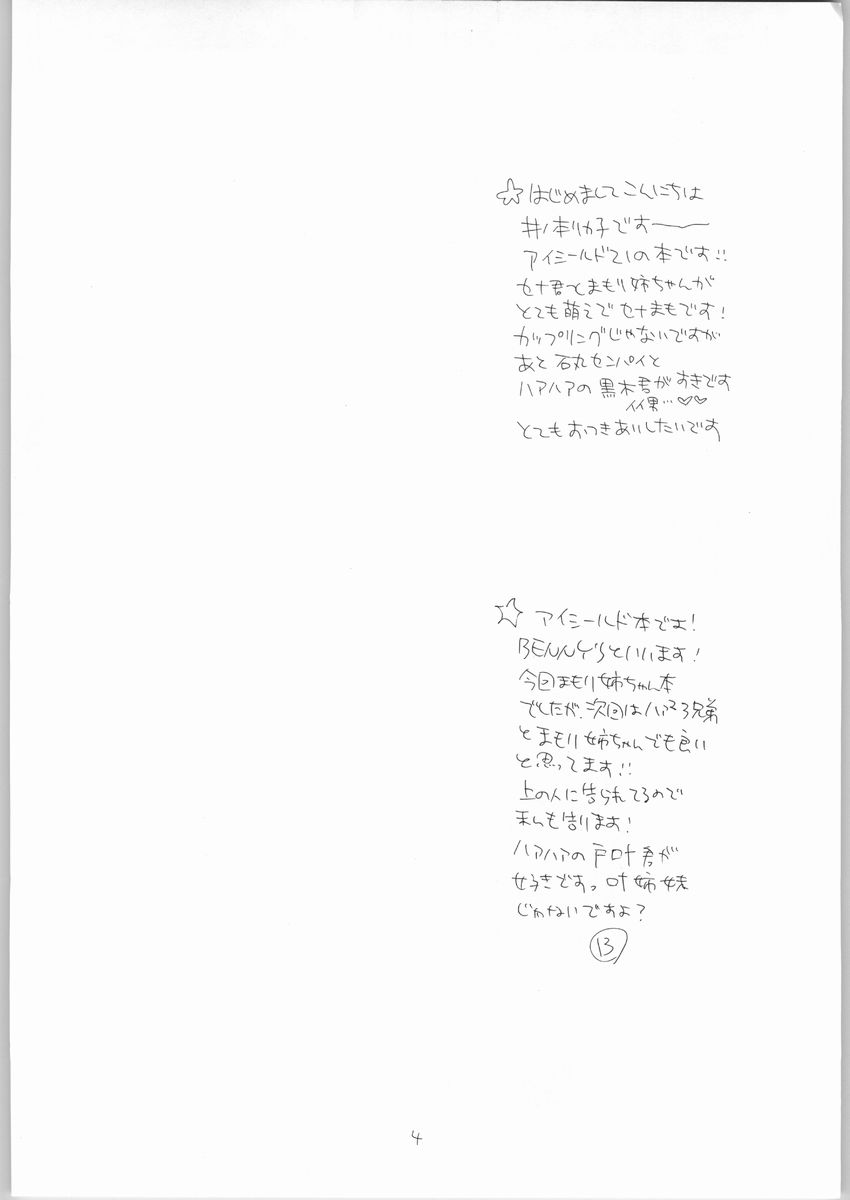 ☆はじめましてこんにちは
井ノ本リカ子です〜
アイシールド21の本です!!
セナ君とまもり姉ちゃんが
とても萌えでセナまもです!
カップリングじゃないですが
あと 石丸センパイと
ハアハアの黒木君がすきです
イイ男…♡♡
とてもおつきあいしたいです
☆ アイシールド本です!
BENNY'Sといいます!
今回まもり姉ちゃん本
でしたが、次回はハアハア3兄弟
とまもり姉ちゃんでも良い
と思ってます!!
上の人に告られてるので
私も告ります!
ハアハアの戸叶君が
好きですっ 叶姉妹
じゃないですよ?
13
4